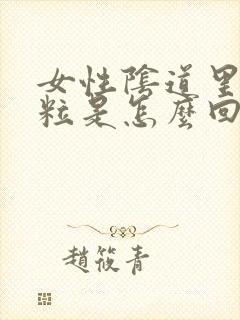 女性陰道里
粒是怎麼回
趙筱青